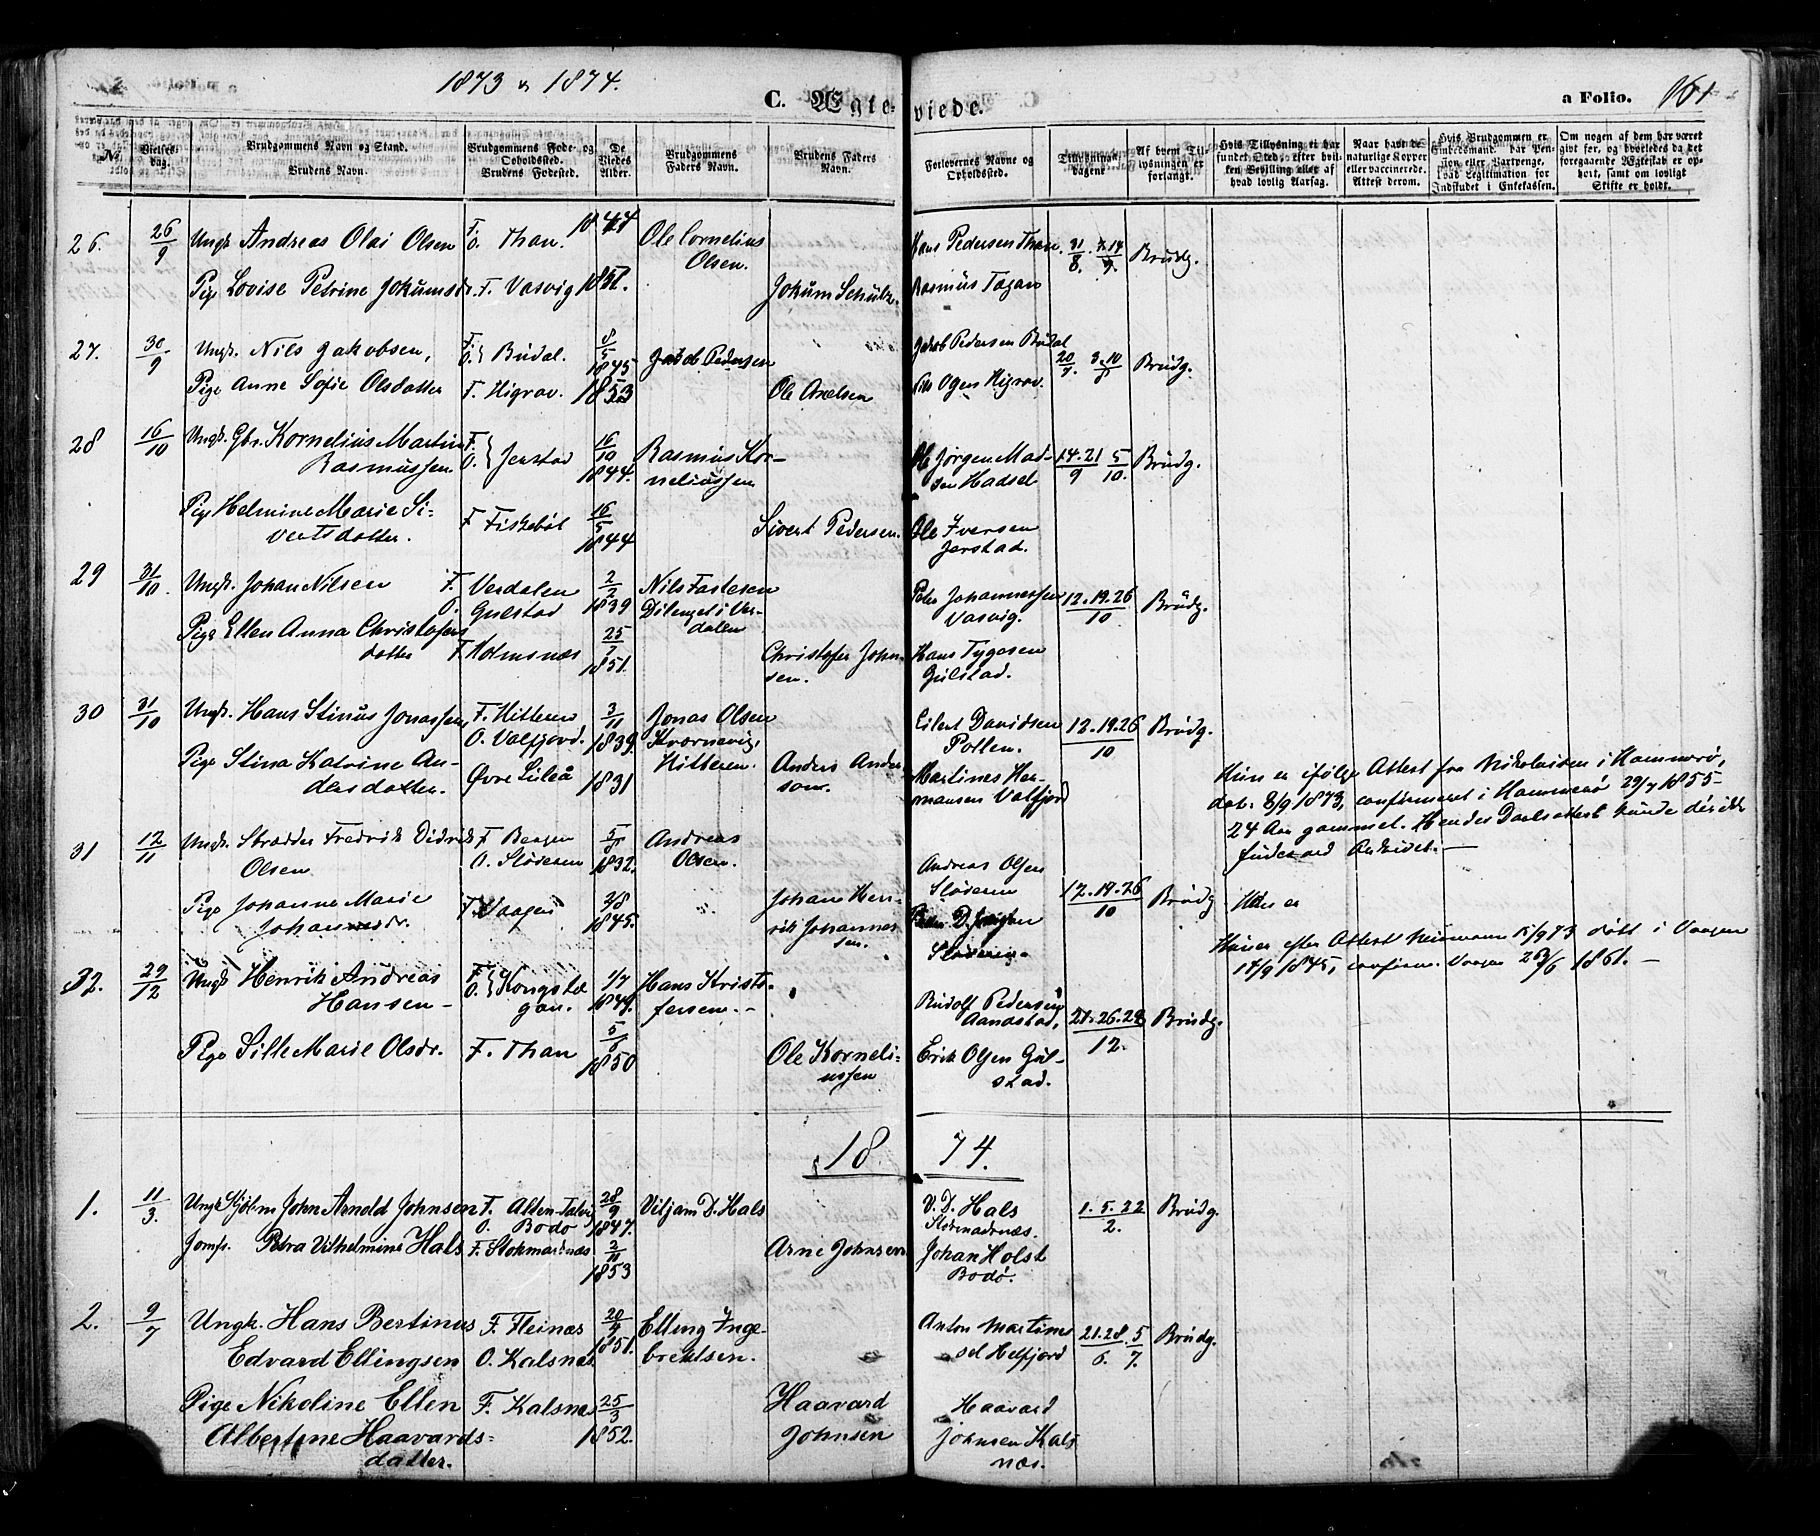 1873 & 1874.
C. Ægteviede.
a Folio. 161
No.
Vielsesdag.
Brudgommens Navn og Stand.
Brudens Navn.
Brudgommens Føde- og Opholdssted.
Brudens Fødested.
De Viedes Alder.
Brudgommens Faders Navn.
Brudens Faders Navn.
Forlovernes Navne og Opholdssted.
Tillysningsdagene
Af hvem Tillysningen er forlangt.
Hvis Tillysning ei har fundet Sted, efter hvilken Bevilling eller af hvad lovlig Aarsag.
Naar havt de naturlige Kopper eller vaccinerede. Attest derom.
Hvis Brudgommen er Embedsmand, har Pension eller Vartpenge, hvad Legitimation for Indskudet i Enkekassen.
Om nogen af dem har været gift før, og hvorledes da det foregaaende Ægteskab er ophørt, samt om lovligt Skifte er holdt.
26. 26/9 Ungk. Andreas Olai Olsen F. O. Than. 1844 Ole Cornelius Olsen. Hans Pedersen Than. 31/8. 7.14/9. Brudg.
Pige Lovise Petrine Jokumsdr. F. Vasvig 1851. Jokum Schultz. Rasmus Tøgan
27. 30/9 Ungk. Nils Jakobsen, F. O. Budal. 8/5 1845 Jakob Pedersen Jakob Pedersen Budal 20/9. 3.10/ Brudg.
Pige Anne Sofie Olsdatter F. Higrav. 1853 Ole Axelsen Nils Ogen Higrav.
28 16/10 Ungk. Gbr. Kornelius Martin Rasmussen F. O. Jerstad 16/10 1844. Rasmus Korneliussen Jørgen Madsen Hadsel 14.21/9 5/10. Brudg.
Pige Helmine Marie Sivertsdatter. F Fiskebøl 16/5 1844 Sivert Pedersen. Ole Iversen Jerstad.
29 31/10. Ungk. Johan Nilsen F. Verdalen O. Gulstad 2/2 1839 Nils Fastesen i Verdalen Peter Johannessen Vasvig. 12.19.26/10 Brudg.
Pige Ellen Anna Christofersdatter F. Holmsnæs 25/7 1851. Christofer Johnsen. Hans Tygesen Gulstad.
30 31/10 Ungk. Hans Stinus Jonassen, F. Hitteren O. Valfjord. 3/11 1839. Jonas Olsen Kværnevig, Hitteren. Eilert Davidsen Pollen. 12.19.26/10 Brudg.
Pige Stina Katrine Andersdatter. Øvre Luleå 1831 Anders Anderson. Martines Hermansen Valfjord
Hun er ifølge Attest fra Nikolaisen i Hammerø,
dat. 8/9 1873, confirmeret i Hammerø 29/7 1855
24 Aar gammel. Hendes Daabsattest kunde der ikke
findes ved Arkivet. —
31 12/11 Ungk. Skrædder Fredrik Didrik Olsen F Bergen O. Sløveren 5/ 1832. Andreas Olsen. Andreas Olsen Sløveren 12.19.26/10 Brudg.
Pige Johanne Marie Johannesdr. F. Vaagen 1845. Johan Henrik Johannessen. Sløveren.
Hun er
Hun er efter Attest Neumann 15/9 73 døbt i Vaagen
14/9 1845, confirm. Vaagen 23/6 1861. —
32. 29/12 Ungk Henrik Andreas Hansen — F. O. Kongstegan. Hans Kristofersen. — Rudolf Pedersen Aandstad, 21.26.28/12. Brudg.
Pige Sille Marie Olsdr. F. Than 1850 Ole Korneliussen Erik Olsen Gulstad.
1874.
1. 11/3. Ungk. John Arnold Johnsen F. Alten-Talvig O. Bodø 28/9 1847. Viljam D. Hals V. D. Hals Stokmarknæs. 1.5.22/2. Brudg.
Jomfr. Petra Vilhelmine Hals F. Stokmarknæs 2/11 1853 Arne Johnsen Johan Holst Bodø.
2. 9/7 Ungk. Hans Bertinus Edvard Ellingsen F. Fleinæs O. Kalsnæs. 20/9 1851. Elling Ingebrektsen. Anton Martines sel Melfjord 21.28/6. 5/7. Brudg.
Pige Nikoline Ellen Albertine Haavardsdatter. F. Kalsnæs 25/3 1852. Haavard Johnsen Haavard Johnsen Kalsnæs.